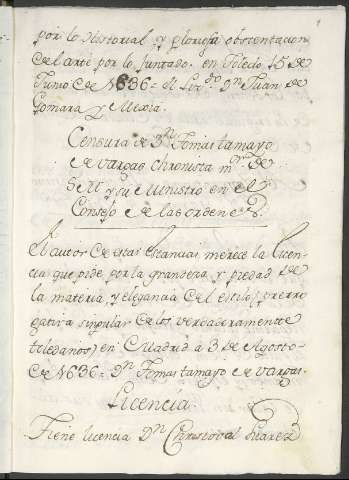 por lo Historial y gloriosa obstentacion
del arte por lo juntado. en Toledo 15 de
Junio de 1636 = El Liz.do Dn Juan de
Gomara y Mexia.
Censura de Dn Tomas tamayo
de vargas chronista mr. de
S M. y su Ministro en el
Consejo de las ordenes.
El autor de estas estancias merece la licen
cia que pide por la grandeza y piedad de
la materia y elegancia del estilo (prerro
gativa singular de los verdaderamente
toledanos) en Madrid a 3 de Agosto
de 1636 = Dn Tomas tamayo de vargas.
Licencia
Tiene licencia Dn Christoval Suarez